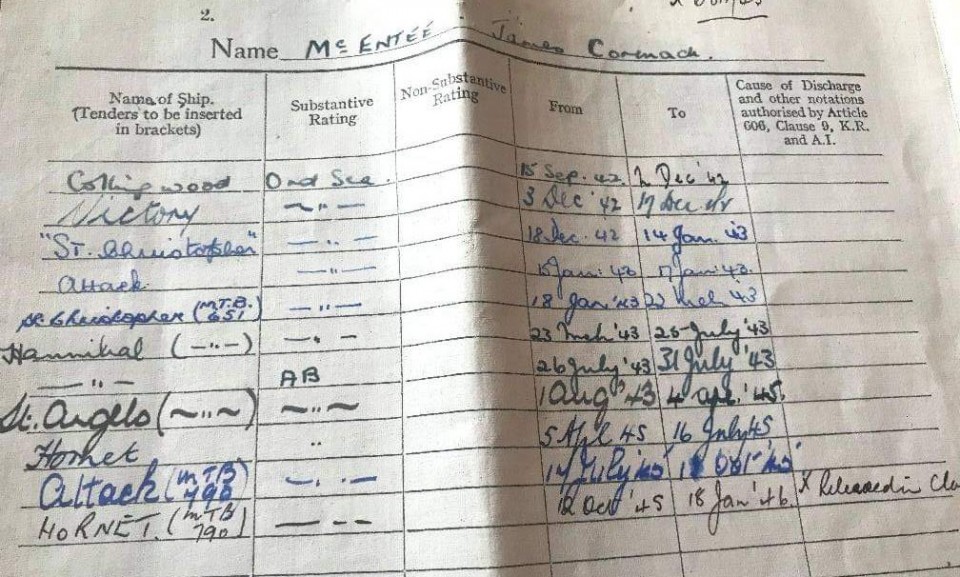 2.
Name Mc ENTEÉ James Cormack.
Name of Ship. (Tenders to be inserted in brackets) Substantive Rating Non-Substantive Rating From To Cause of Discharge and other notations authorised by Article 606, Clause 9, K.R. and A.I.
Collingwood Ord Sea. 15 Sep. '42 2 Dec '42
Victory —"— 3 Dec '42 17 Dec
"St. Christopher" —"— 18 Dec. 42 14 Jan. 43
Attack —"— 15 Jan. 43 17 Jan. 43.
St Christopher (M.T.B. 651) —"— 18 Jan '43 22 Mch '43
Hannibal (—"—) —"— 23 Mch '43 25 July '43
—"— AB 26 July '43 31 July '43
St. Angelo (~"~) ~"~ 1 Aug '43 4 Apl. '45.
Hornet " 5 Apl 45 16 July 45
Attack (MTB 790) —"— 17 July '45 Oct '45
HORNET. (MTB 790) — — 12 Oct '45 18 Jan '46. X Released in Cla